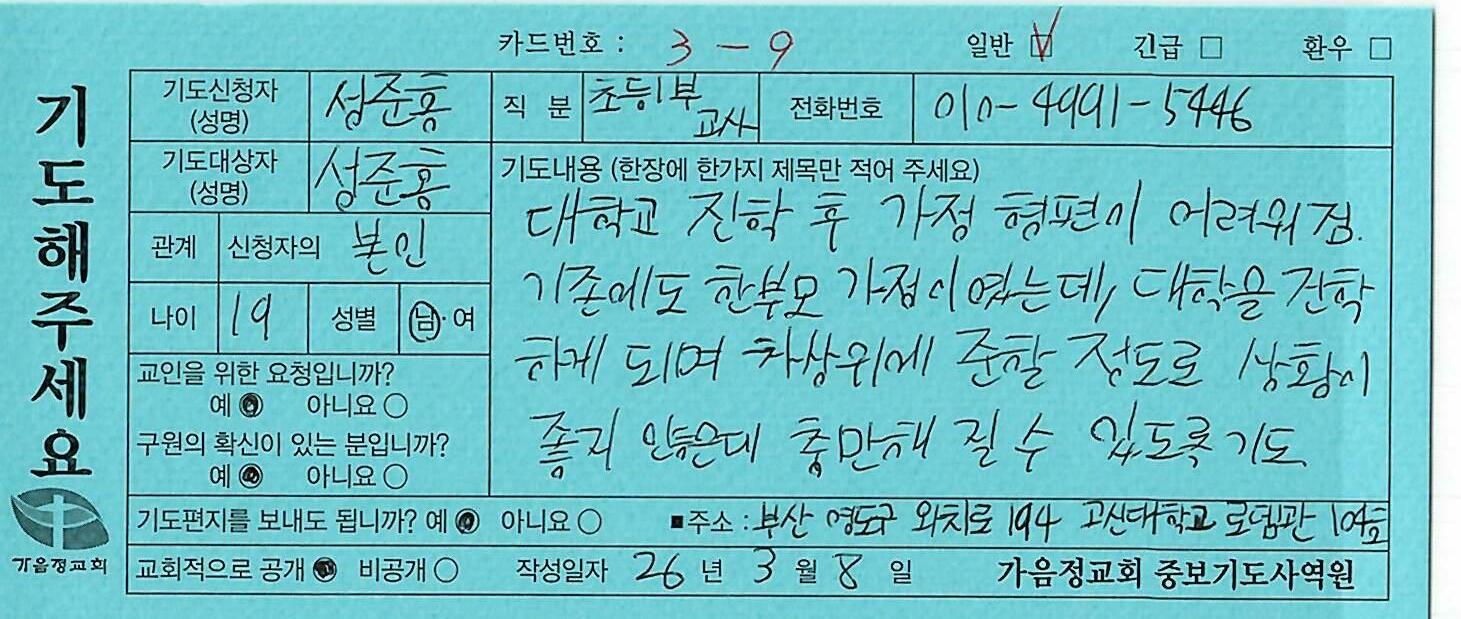 카드번호 : 3 - 9 일반 ☑ 긴급 □ 환우 □
기도해주세요
기도신청자 (성명) 성준홍 직 분 초등1부 교사 전화번호 010-4991-5446
기도대상자 (성명) 성준홍
관계 신청자의 본인
나이 19 성별 남·여
교인을 위한 요청입니까?
예 ● 아니요 ○
구원의 확신이 있는 분입니까?
예 ● 아니요 ○
기도내용 (한장에 한가지 제목만 적어 주세요)
대학교 진학 후 가정 형편이 어려워짐.
기존에도 한부모 가정이였는데, 대학을 진학
하게 되며 차상위에 준할 정도로 상황이
좋지 않은데 충만해 질 수 있도록 기도
기도편지를 보내도 됩니까? 예 ● 아니요 ○ ■주소 : 부산 영도구 와치로 194 고신대학교 로뎀관 104호
교회적으로 공개 ● 비공개 ○ 작성일자 26 년 3 월 8 일 가음정교회 중보기도사역원
가음정교회